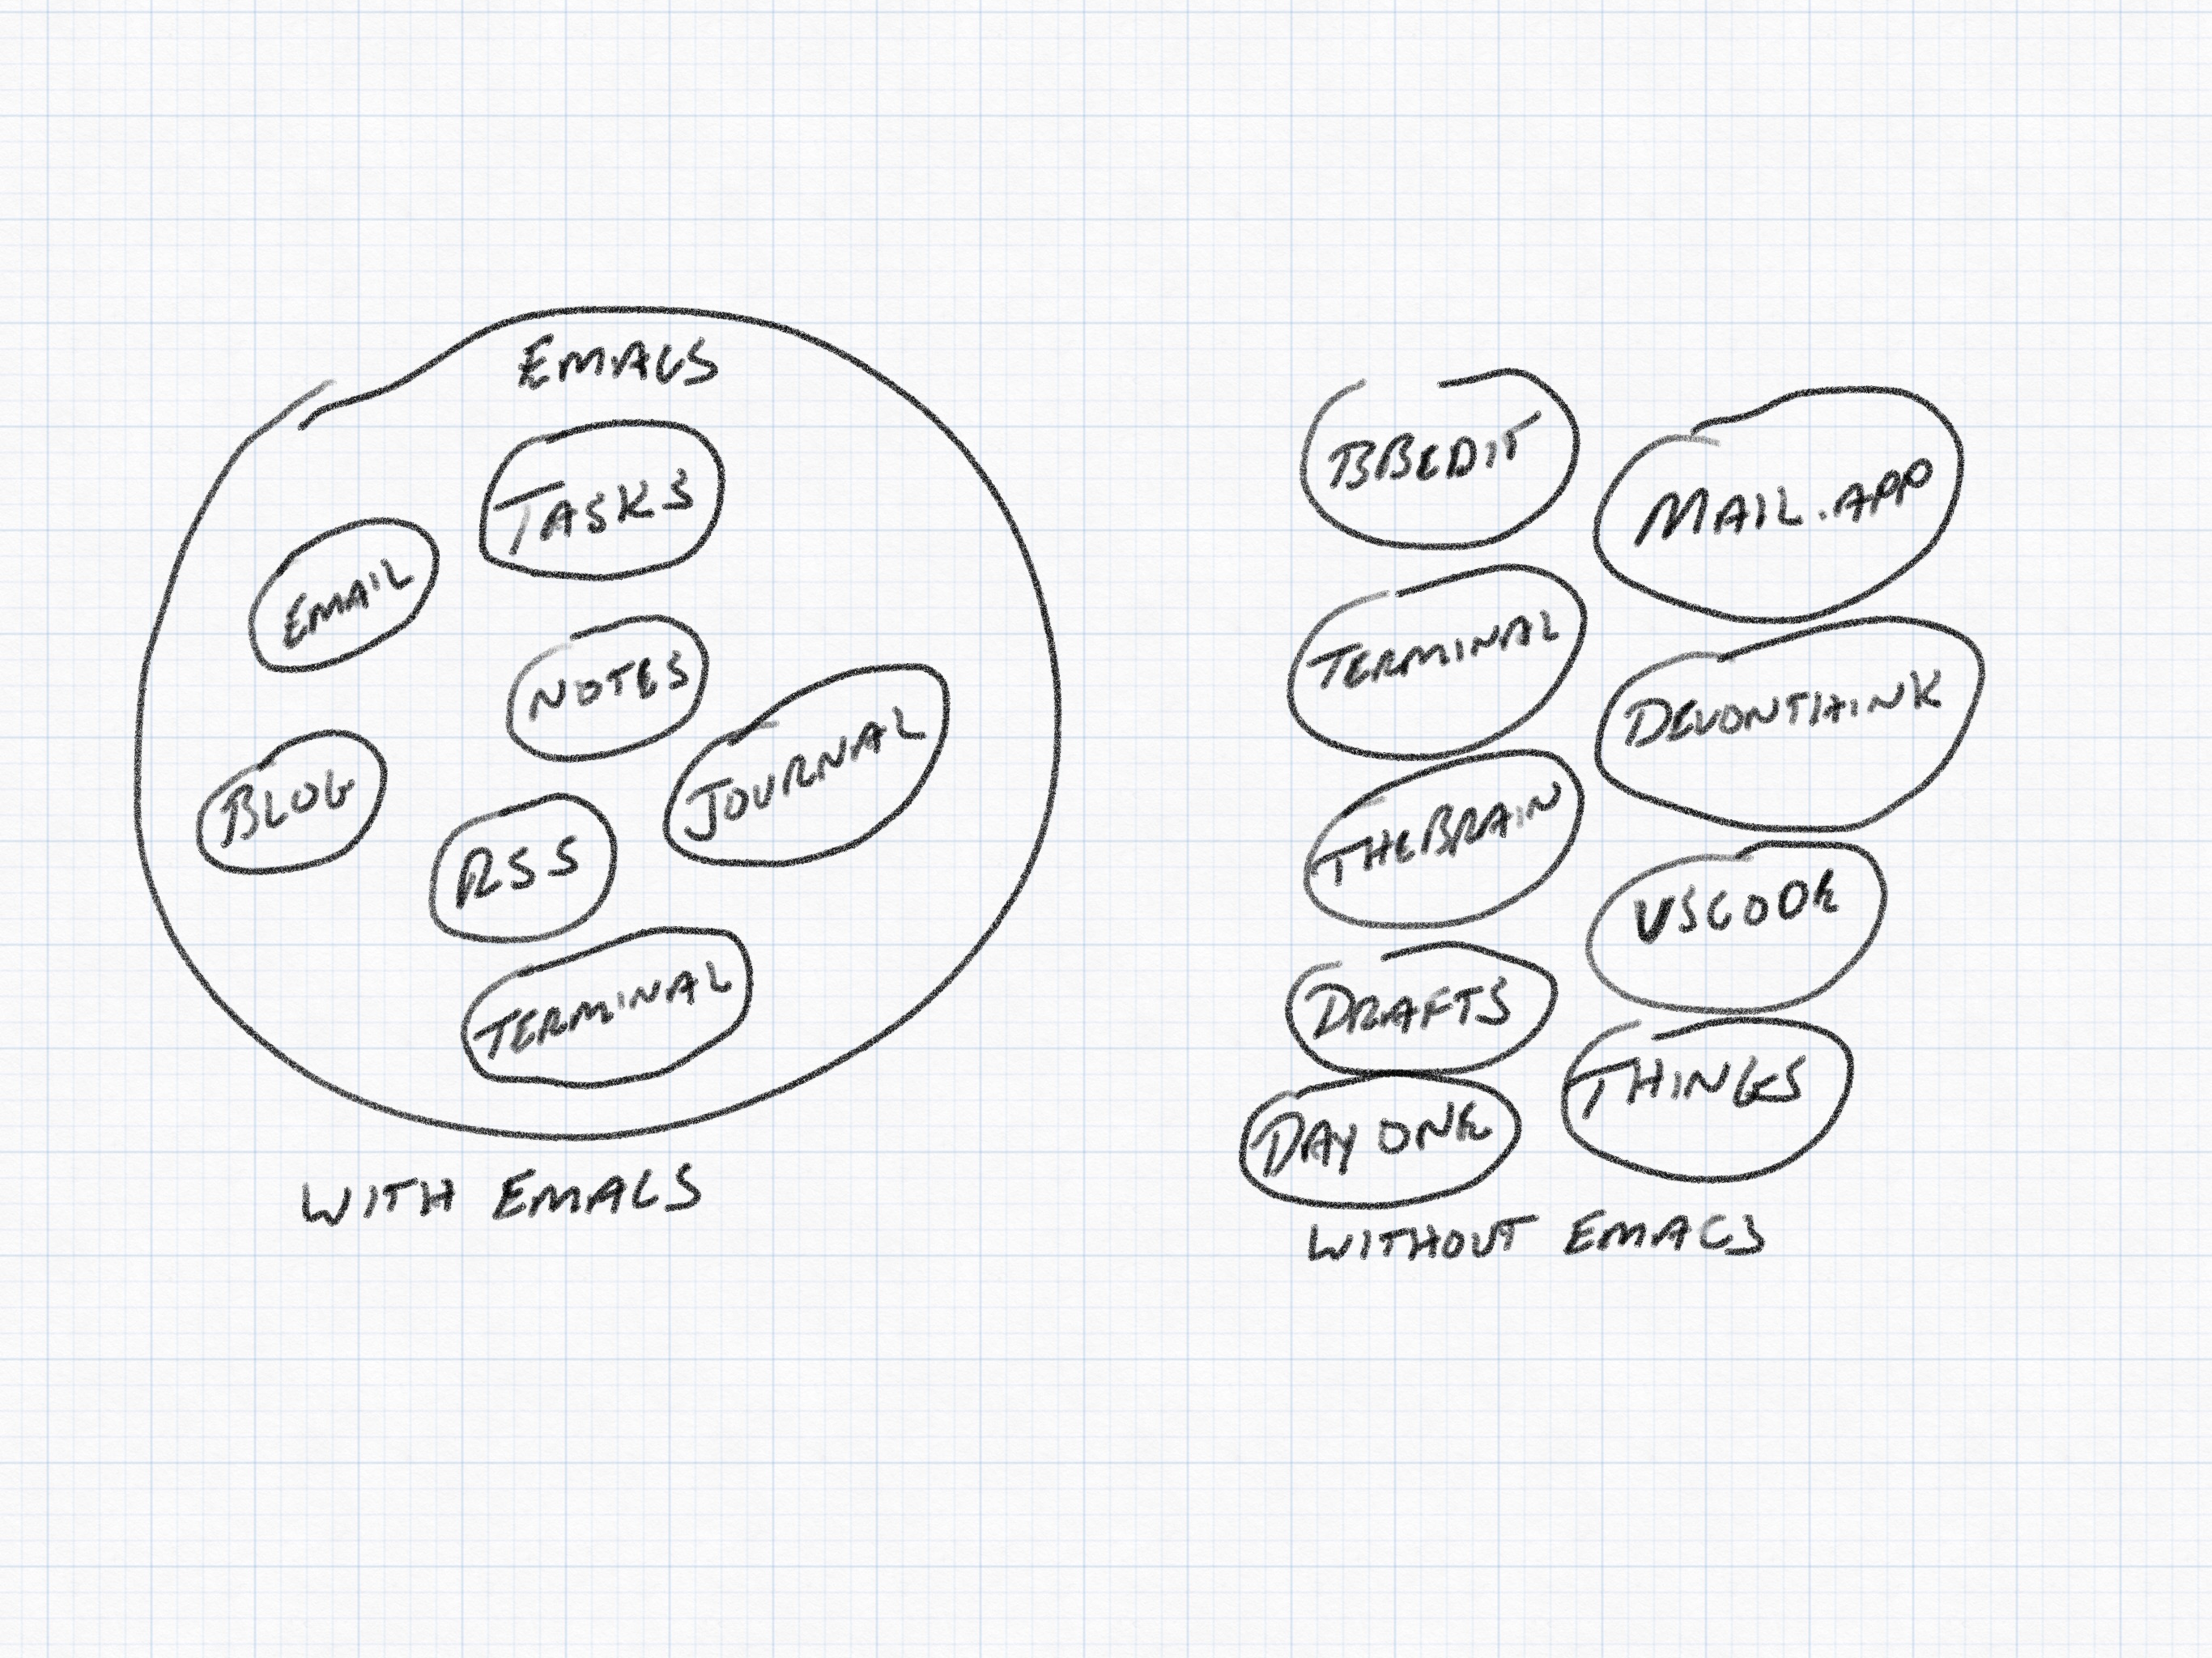 EMACS
TASKS
EMAIL
NOTES
JOURNAL
BLOG
RSS
TERMINAL
WITH EMACS
BBEDIT
MAIL.APP
TERMINAL
DEVONTHINK
THEBRAIN
VSCODE
DRAFTS
THINGS
DAY ONE
WITHOUT EMACS